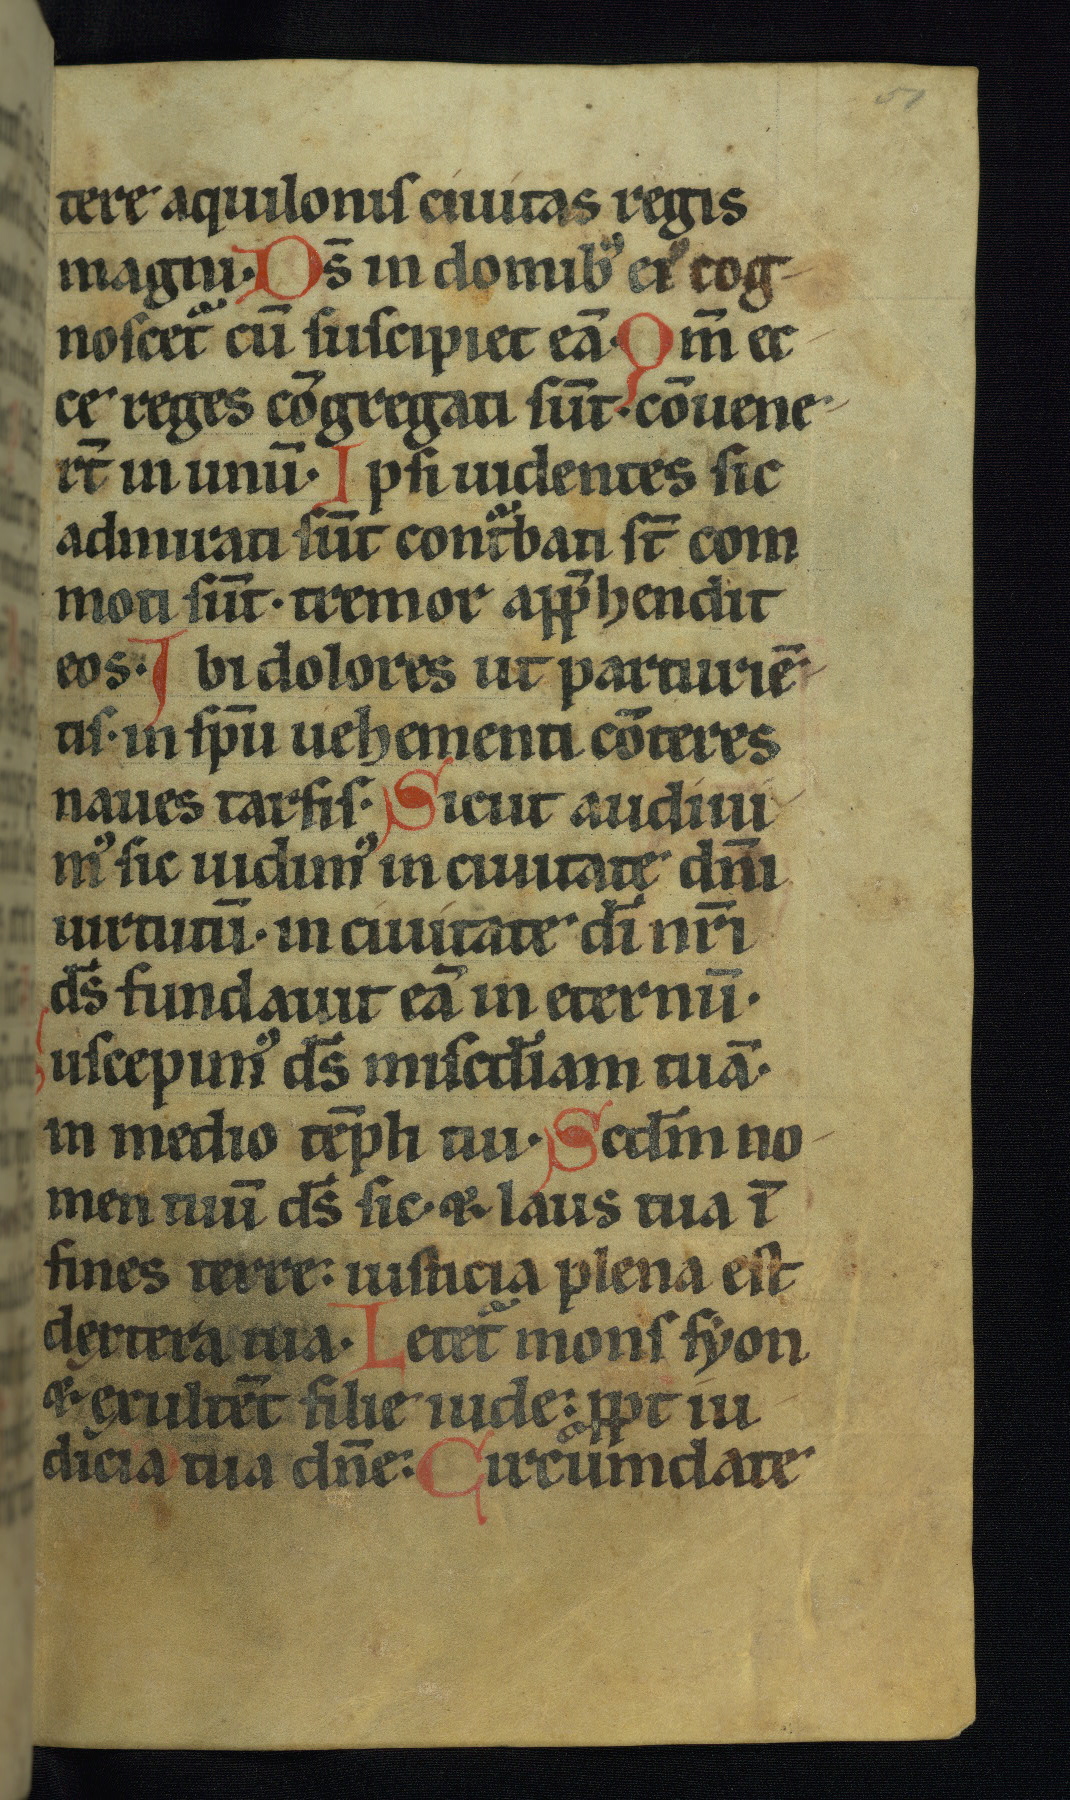 51
tere aquilonis ciuitas regis
magni. Ds̄ in domibꝰ eiꝰ cog-
noscetᷓ cū suscipiet eā. Qm̄ ec-
ce reges cōgregati sūt. cōuene-
rt̄ in unū. Ipsi uidentes sic
admirati sūt contᷓbati st̄ com
moti sūt. tremor app̄hendit
eos. Ibi dolores ut parturiē-
tis. in sp̄u uehementi cōteres
naues tarsis. Sicut audiui-
mꝰ sic uidimꝰ in ciuitate dn̄i
uirtutū. in ciuitate dī nr̄i
ds̄ fundauit eā in eternū.
Suscepimꝰ ds̄ misc̄diam tuā.
in medio tēpli tui. Scd̄m no-
men tuū ds̄ sic. & laus tua ī
fines terre: iusticia plena est
dextera tua. Letetᷓ mons syon
& exultēt filie iude: ꝓpt iu-
dicia tua dn̄e: Circūmdate